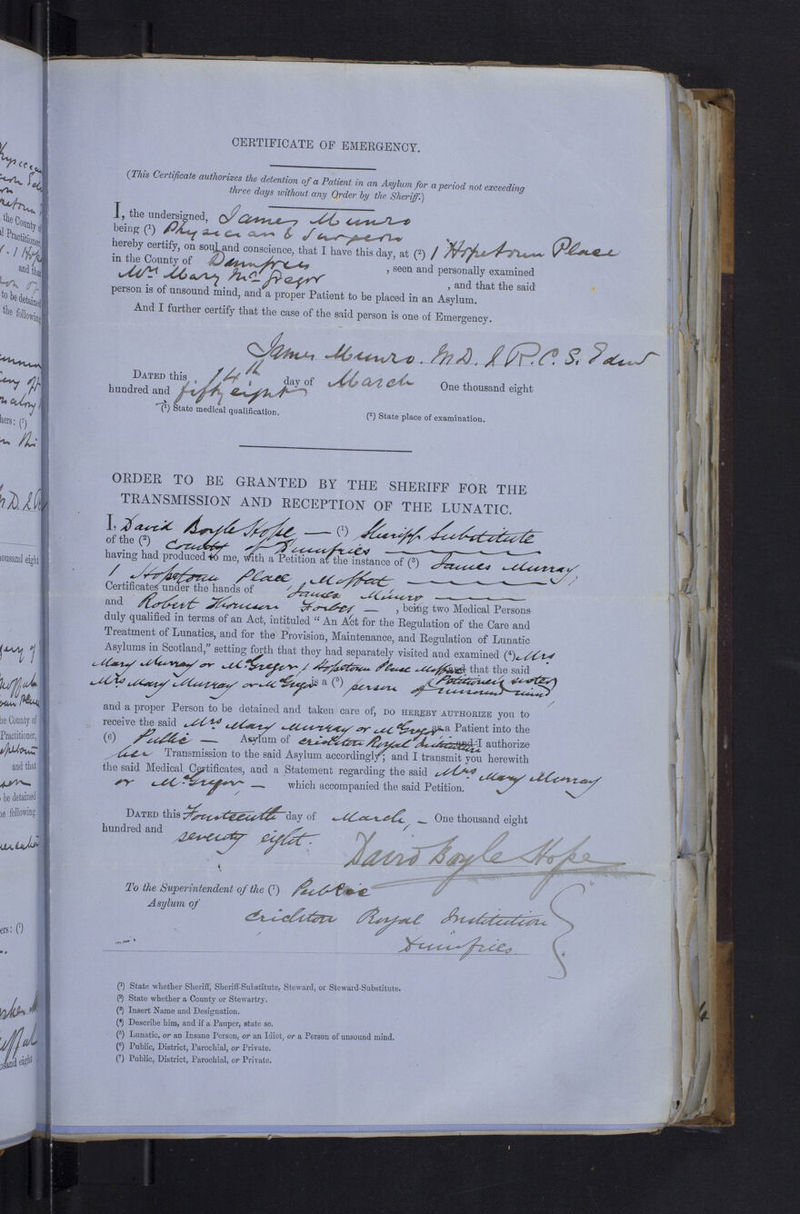 CERTIFICATE OF EMERGENCY.
(This Certificate authorizes the detention of a Patient in an Asylum for a period not exceeding
three days without any Order by the Sheriff.)
I, the undersigned, James Munro
being (¹) Physician & Surgeon
hereby certify, on soul and conscience, that I have this day, at (²) 1 Hopetoun Place
in the County of Dumfries , seen and personally examined
Mrs Mary McGregor , and that the said
person is of unsound mind, and a proper Patient to be placed in an Asylum.
And I further certify that the case of the said person is one of Emergency.
James Munro. M.D. L.R.C.S. Edin
DATED this 14th day of March One thousand eight
hundred and fifty eight
(¹) State medical qualification. (²) State place of examination.
ORDER TO BE GRANTED BY THE SHERIFF FOR THE
TRANSMISSION AND RECEPTION OF THE LUNATIC.
I, David Boyle Hope — (¹) Sheriff Substitute
of the (²) County of Dumfries
having had produced to me, with a Petition at the instance of (³) James Murray,
1 Hopetoun Place, Moffat
Certificates under the hands of James Munro
and Robert Thomson Forbes — , being two Medical Persons
duly qualified in terms of an Act, intituled "An Act for the Regulation of the Care and
Treatment of Lunatics, and for the Provision, Maintenance, and Regulation of Lunatic
Asylums in Scotland," setting forth that they had separately visited and examined (⁴) Mrs
Mary Murray or McGregor, 1 Hopetoun Place Moffat that the said
(Petitioner's sister)
Mrs Mary Murray or McGregor is a (⁵) person of unsound mind
and a proper Person to be detained and taken care of, DO HEREBY AUTHORIZE you to
receive the said Mrs Mary Murray or McGregor a Patient into the
(⁶) Public — Asylum of Crichton Royal Institution I authorize
her Transmission to the said Asylum accordingly; and I transmit you herewith
the said Medical Certificates, and a Statement regarding the said Mrs Mary Murray
or McGregor — which accompanied the said Petition.
DATED this Fourteenth day of March, — One thousand eight
hundred and seventy eight.
David Boyle Hope
To the Superintendent of the (⁷) Public
Asylum of
Crichton Royal Institution
Dumfries.
(¹) State whether Sheriff, Sheriff-Substitute, Steward, or Steward-Substitute.
(²) State whether a County or Stewartry.
(³) Insert Name and Designation.
(⁴) Describe him, and if a Pauper, state so.
(⁵) Lunatic, or an Insane Person, or an Idiot, or a Person of unsound mind.
(⁶) Public, District, Parochial, or Private.
(⁷) Public, District, Parochial, or Private.